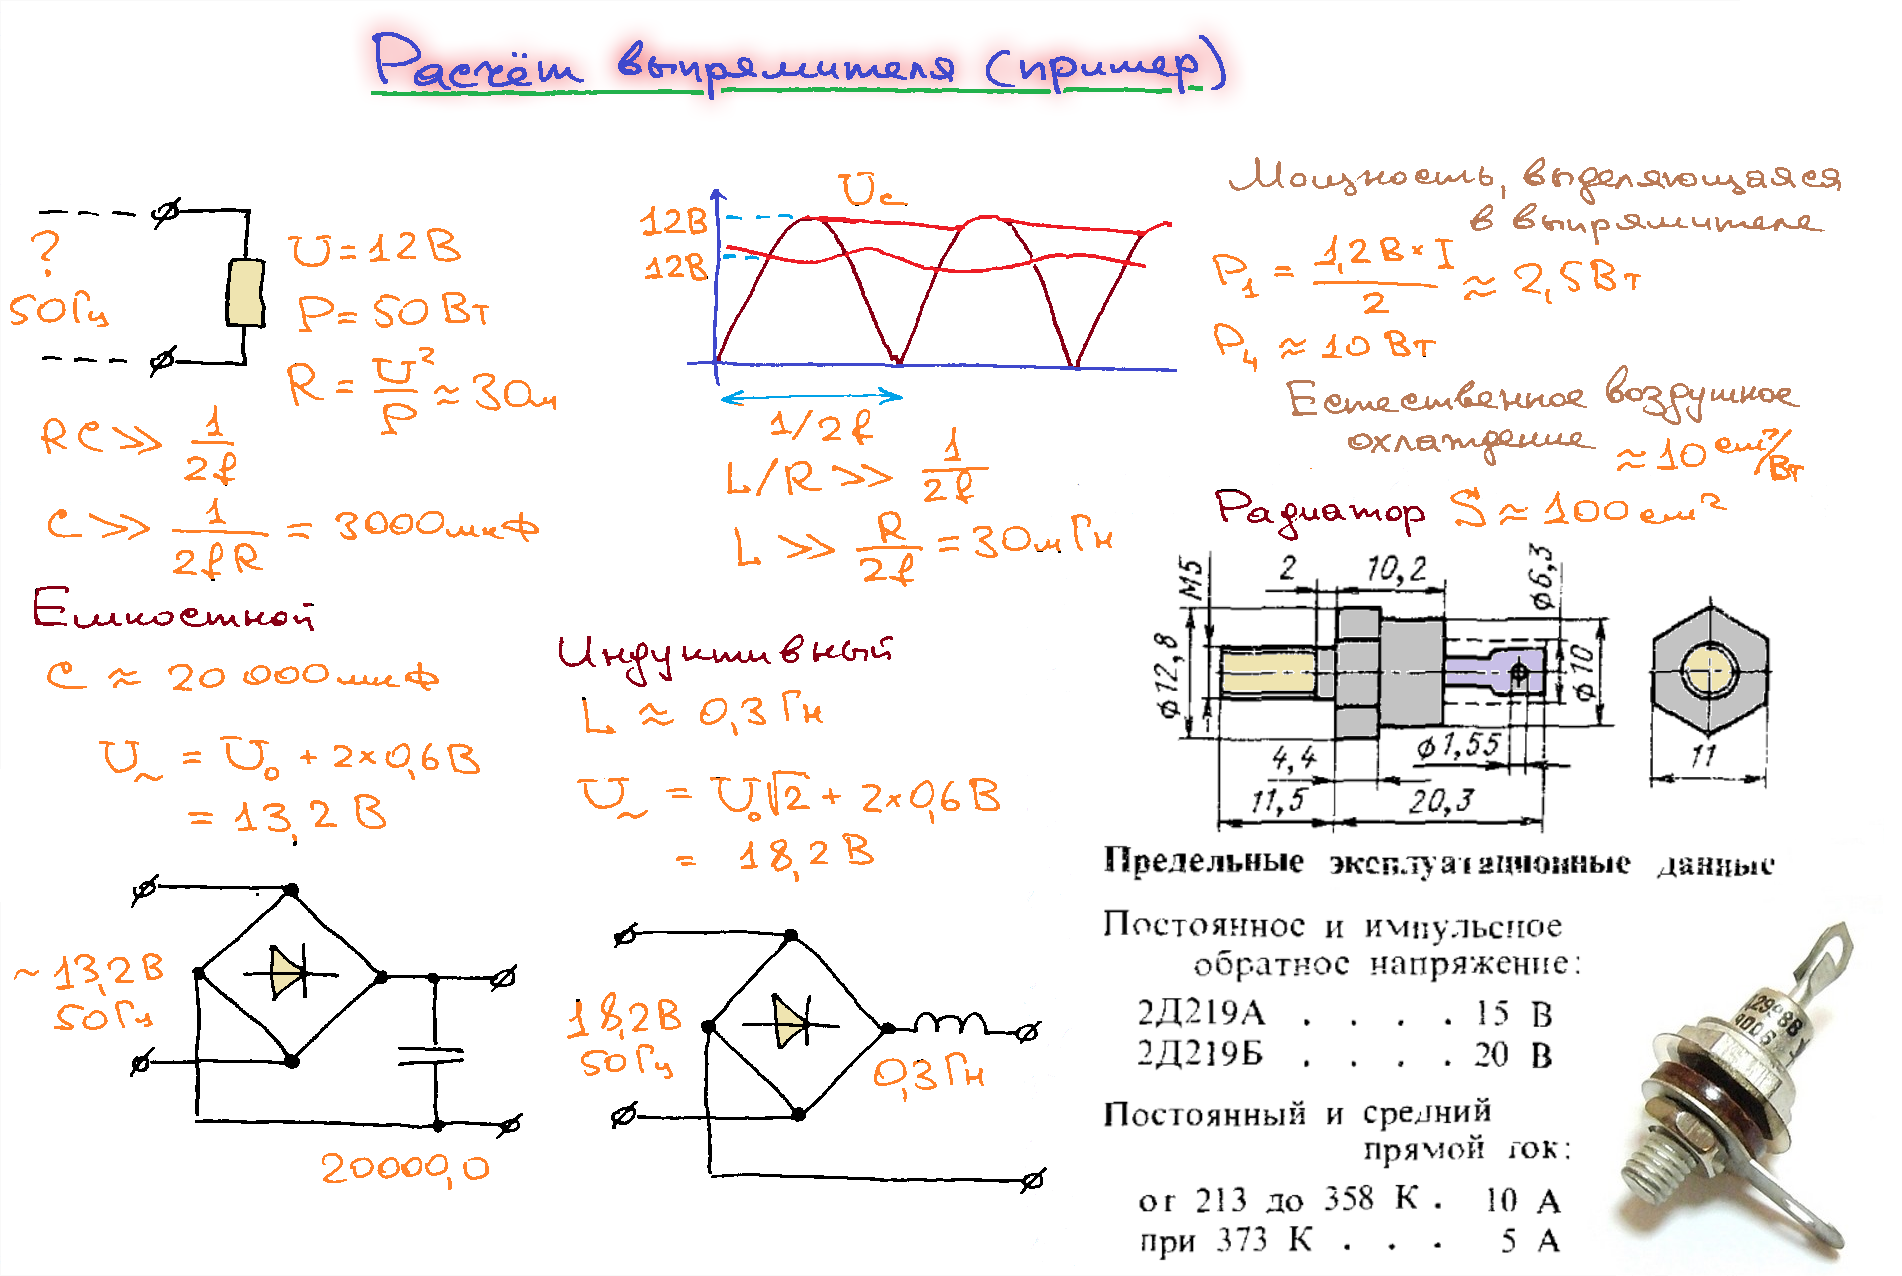 Расчёт выпрямителя (пример)
?
50Гц
U = 12 В
P = 50 Вт
R = U²/P ≈ 3Ом
RC >> 1/2f
C >> 1/2fR = 3000мкФ
Емкостной
C ≈ 20 000мкФ
U~ = U₀ + 2×0,6 В
= 13,2 В
~ 13,2 В
50Гц
20000,0
Uc
12В
12В
1/2f
L/R >> 1/2f
L >> R/2f = 30мГн
Индуктивный
L ≈ 0,3 Гн
U~ = U₀√2 + 2×0,6 В
= 18,2 В
18,2 В
50Гц
0,3 Гн
Мощность, выделяющаяся
в выпрямителе
P₁ = 1,2 В × I/2 ≈ 2,5 Вт
P₄ ≈ 10 Вт
Естественное воздушное
охлаждение ≈ 10 см²/Вт
Радиатор S ≈ 100 см²
М5
2
10,2
ф6,3
ф12,8
ф10
4,4
ф1,55
11
11,5
20,3
Предельные эксплуатационные данные
Постоянное и импульсное
обратное напряжение:
2Д219А . . . . 15 В
2Д219Б . . . . 20 В
Постоянный и средний
прямой ток:
от 213 до 358 К . 10 А
при 373 К . . . 5 А